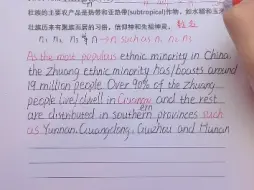 壮族的主要农产品是热带和亚热带(subtropical)作物，如水稻和玉米
壮族历来有聚族而居的习俗，信仰神和先祖神灵。
n₁ n₂ n₃ n → such as n₁ n₂ n₃
As the most populous ethnic minority in China
the Zhuang ethnic minority has/boasts around
19 million people. Over 90% of the Zhuang
people live/dwell in Guangxi and the rest
ern
are distributed in southern provinces such
as Yunnan, Guangdong, Guizhou and Hunan